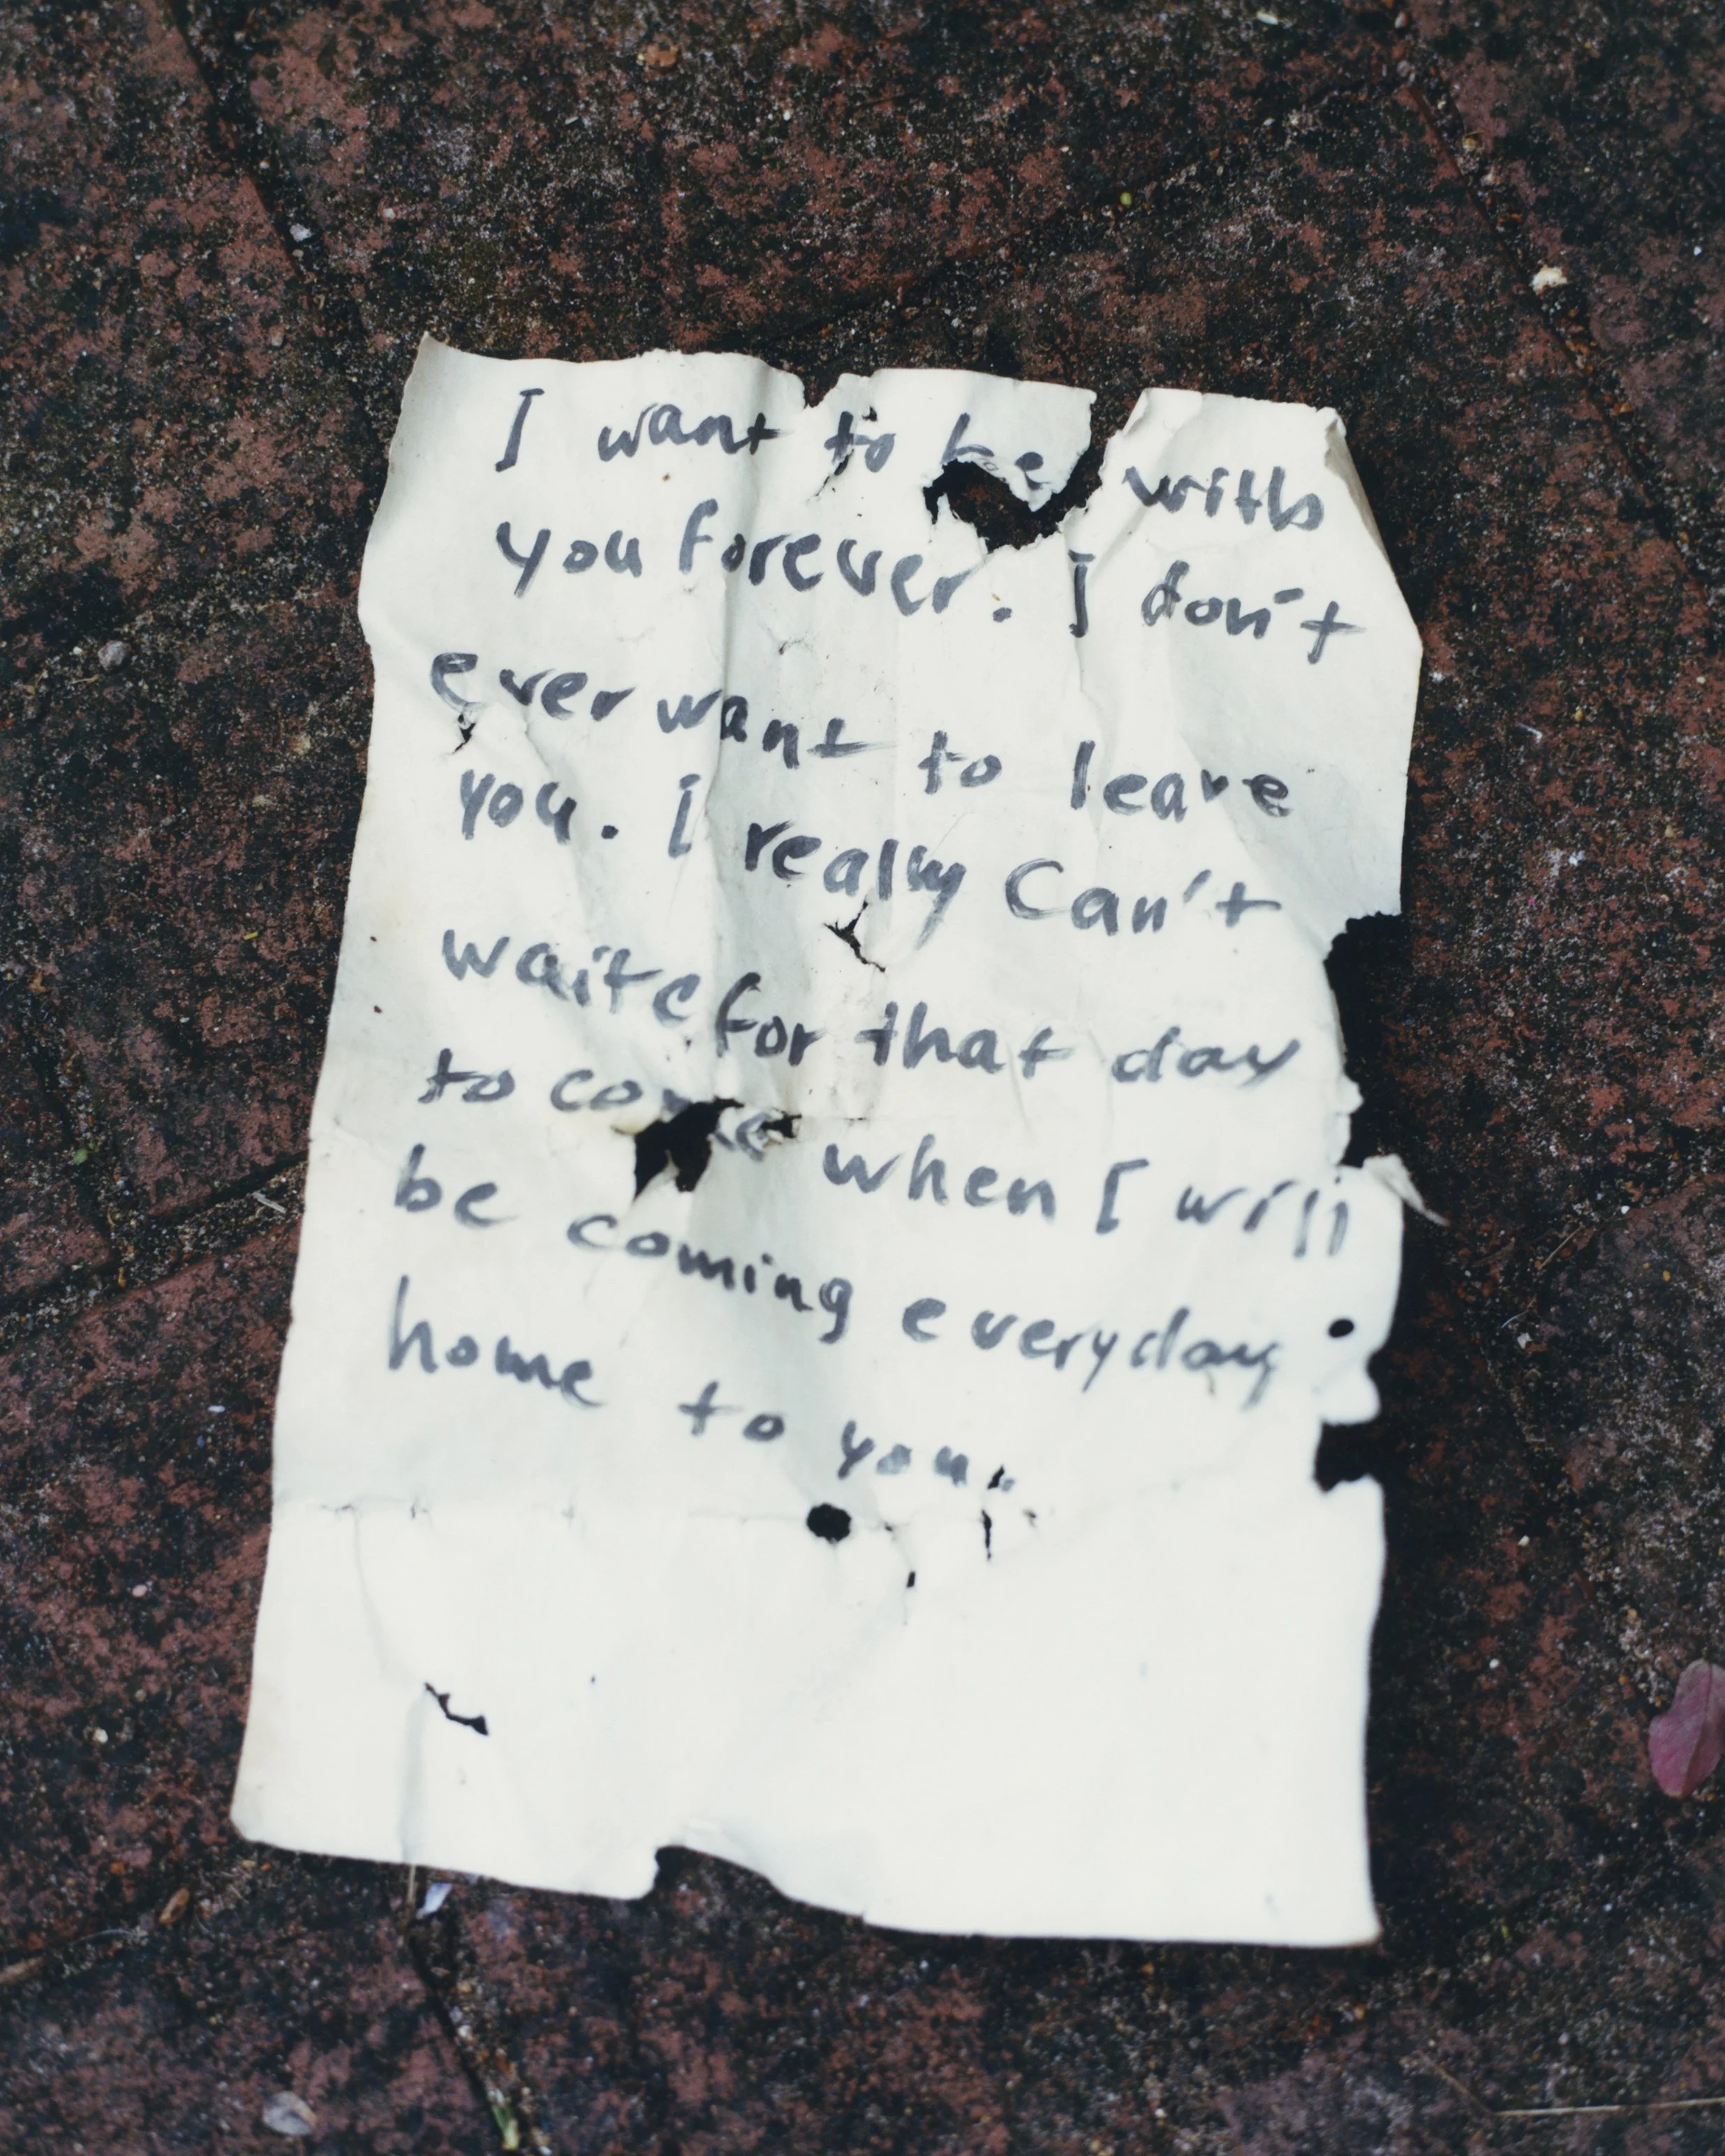 I want to be with
you forever. I don't
ever want to leave
you. I really Can't
waite for that day
to come when I will
be coming everyday
home to you.